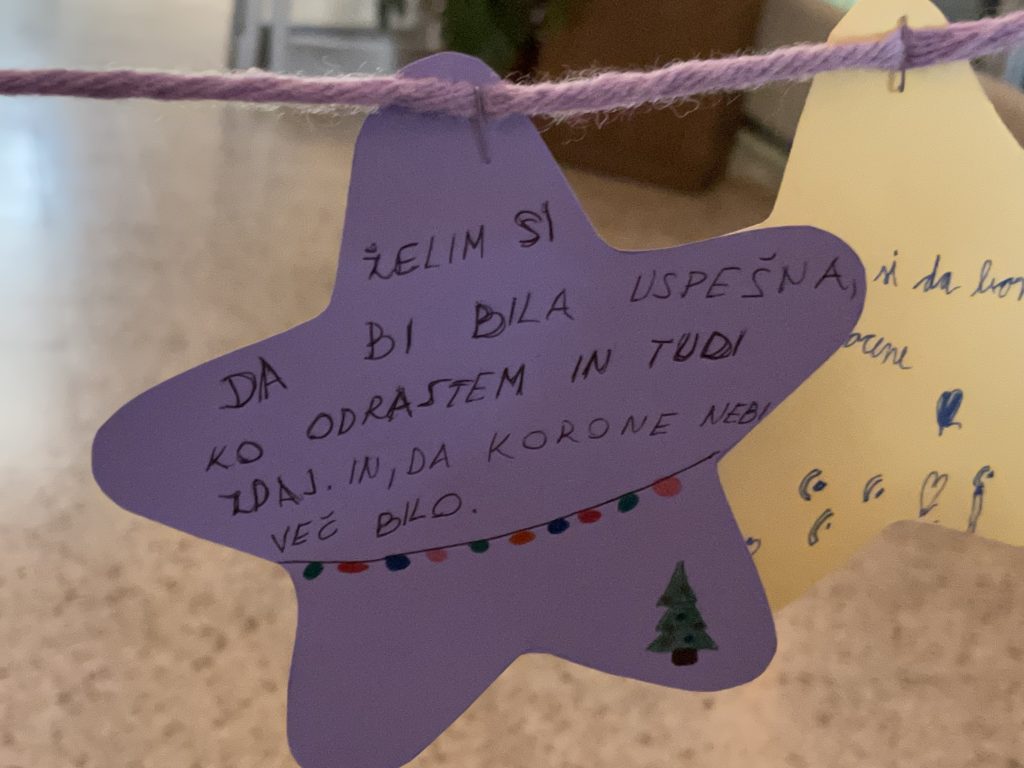 ŽELIM SI
DA BI BILA USPEŠNA,
KO ODRASTEM IN TUDI
ZDAJ. IN, DA KORONE NEBI
VEČ BILO.
si da
ocene